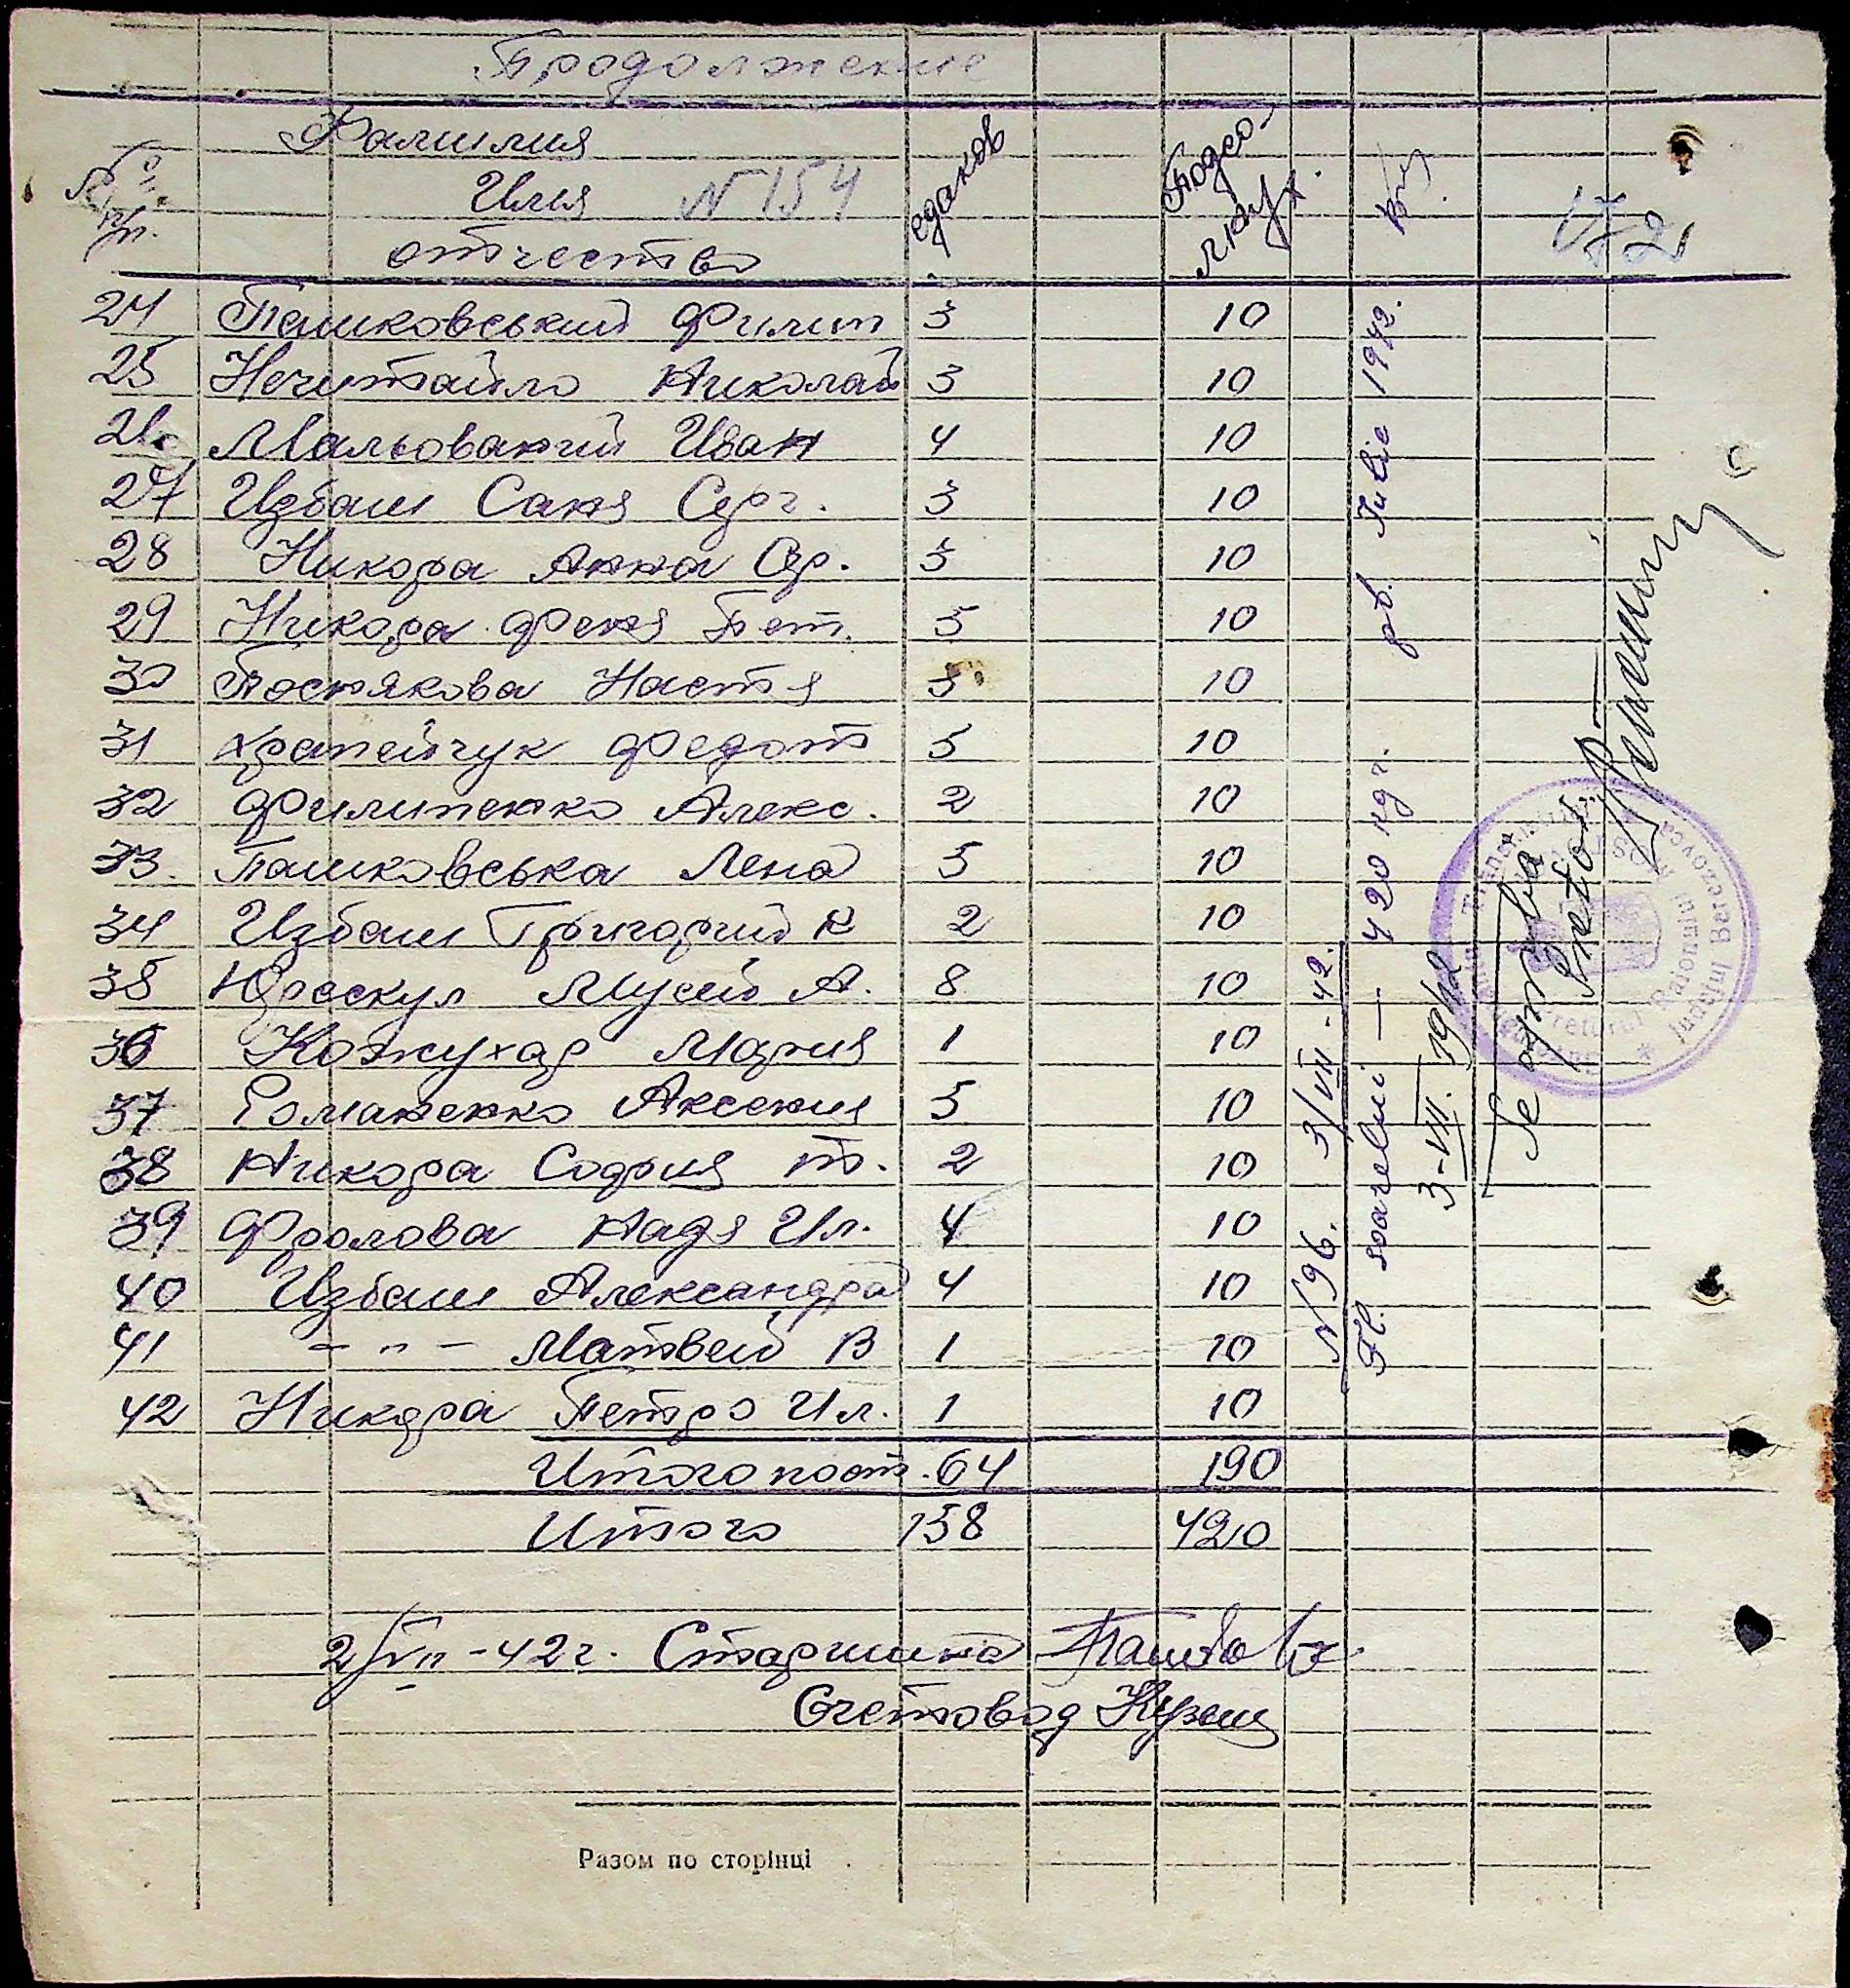 Продолжение
№ п/п.
Фамилия
Имя N 154
отчество
едаков
Подсолнух.
24 Пашковський Филип 3 10
25 Нечитайло Николай 3 10
26 Мальований Иван 4 10
27 Избаш Саня Серг. 3 10
28 Никора Анна Сер. 3 10
29 Никора Феня Пет. 5 10
30 Поснякова Настя 3 10
31 Крапейчук Федот 5 10
32 Филипенко Алекс. 2 10
33. Пашковська Лена 5 10
34 Избаш Григорий К 2 10
35 Юрескул Мусий А. 8 10
36 Кожухар Мария 1 10
37 Романенко Аксения 5 10
38 Никора София т. 2 10
39 Фролова Надя Ил. 4 10
40 Избаш Александра 4 10
41 - " - Матвей В 1 10
42 Никора Петро Ил. 1 10
Итого по от. 64 190
Итого 158 420
2/VII - 42 г. Старшина
Счетовод
Разом по сторінці
N 96. 3/VII - 42.
Fl. soarelui — 420 kgr. pt. Iulie 1942.
3-VII. 1942
Se aprobă
Pretor
Preturei Raionului
Judeţul Berezovca